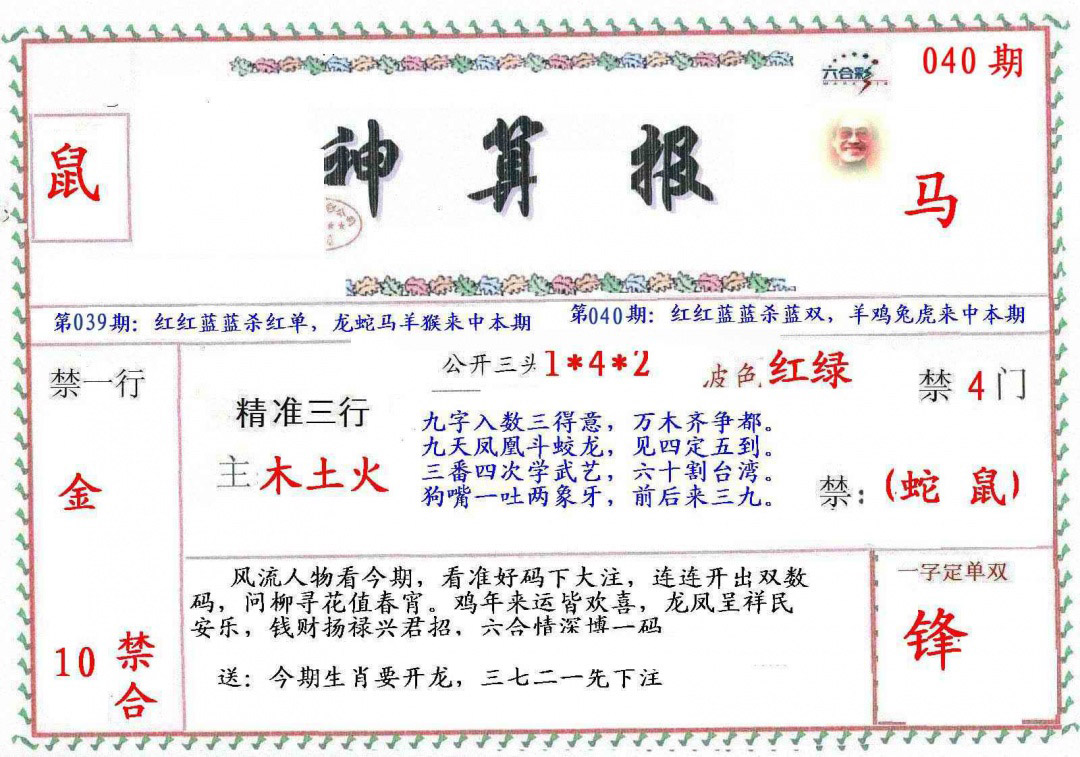 六合彩
040 期
鼠
神 算 报
马
第039期：红红蓝蓝杀红单，龙蛇马羊猴来中本期
第040期：红红蓝蓝杀蓝双，羊鸡兔虎来中本期
禁一行
金
10 禁合
精准三行
主 木土火
公开三头 1*4*2
波色 红绿
九字入数三得意，万木齐争都。
九天凤凰斗蛟龙，见四定五到。
三番四次学武艺，六十割台湾。
狗嘴一吐两象牙，前后来三九。
禁 4 门
禁：(蛇 鼠)
风流人物看今期，看准好码下大注，连连开出双数
码，问柳寻花值春宵。鸡年来运皆欢喜，龙凤呈祥民
安乐，钱财扬禄兴君招，六合情深博一码
送：今期生肖要开龙，三七二一先下注
一字定单双
锋